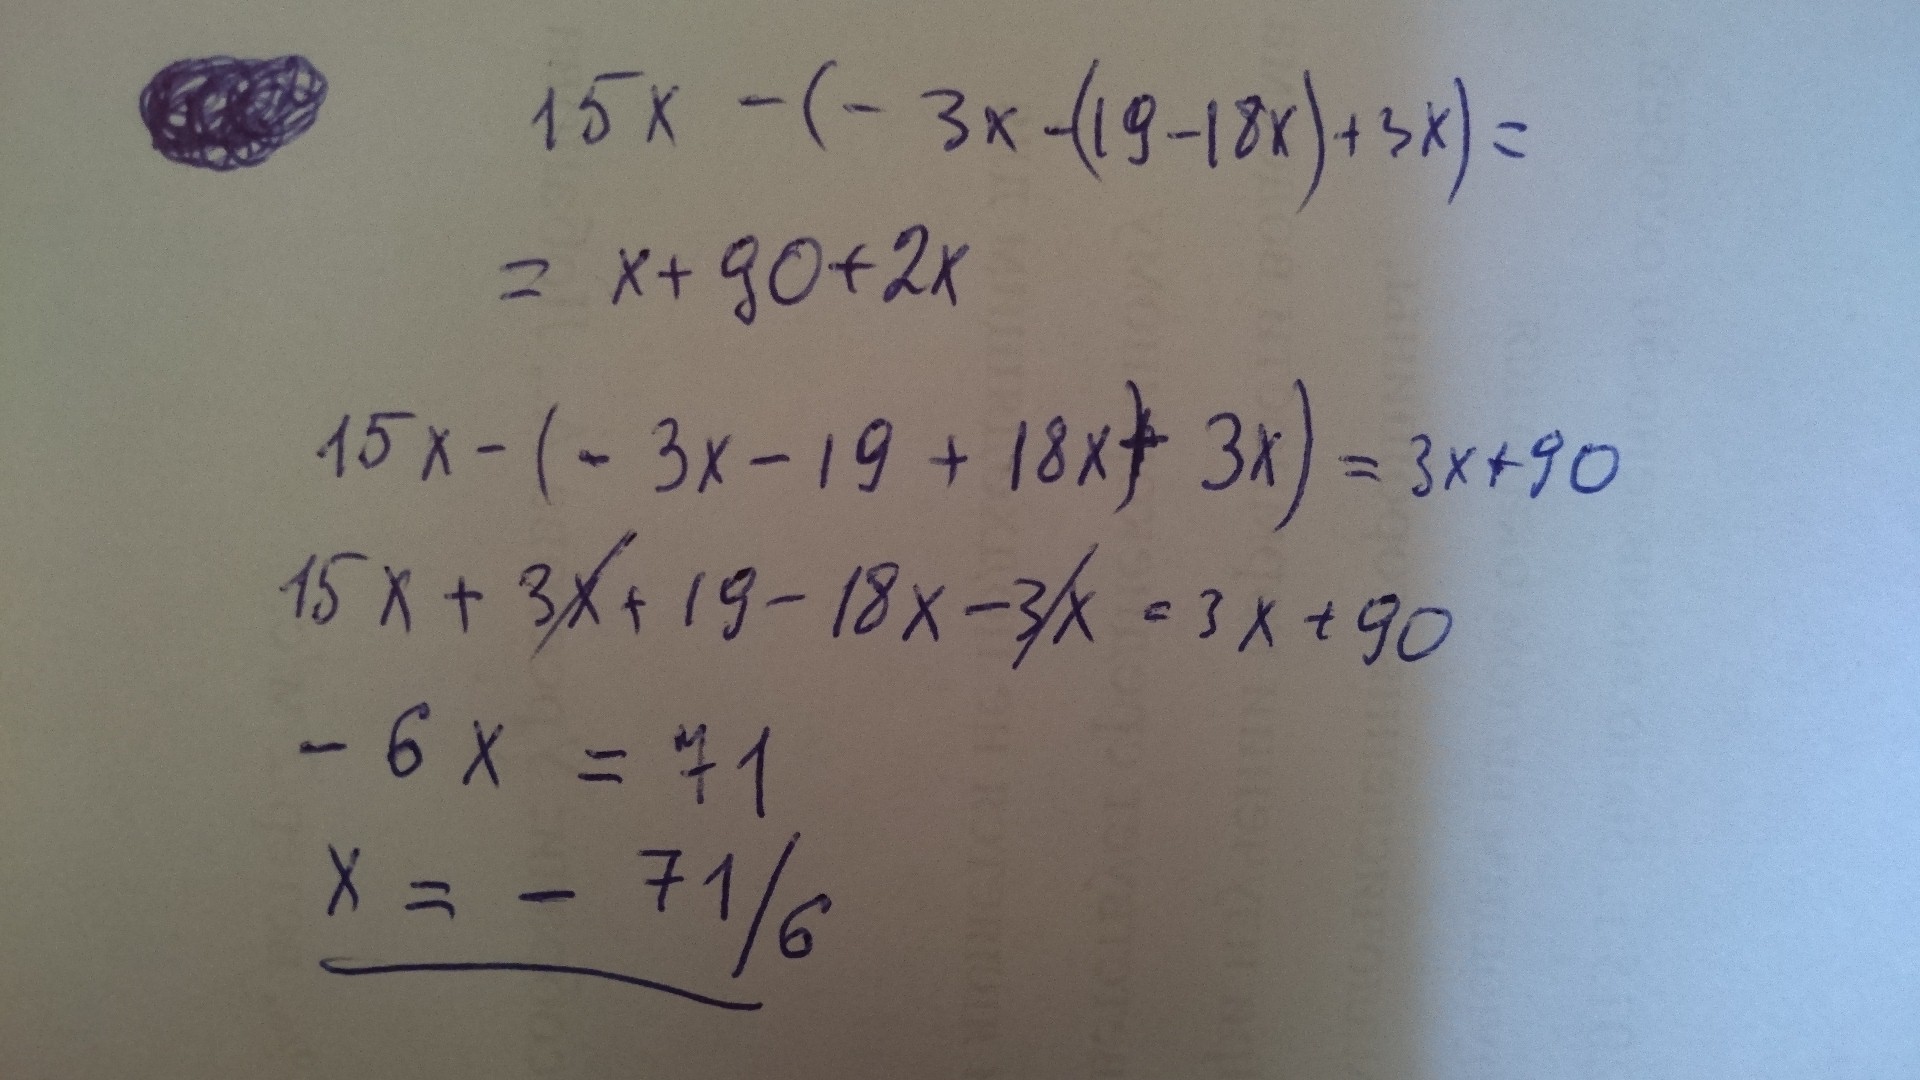 15x - (- 3x - (19 - 18x) + 3x) =
= x + 90 + 2x
15x - (- 3x - 19 + 18x + 3x) = 3x + 90
15x + 3x + 19 - 18x - 3x = 3x + 90
- 6x = 71
x = - 71/6